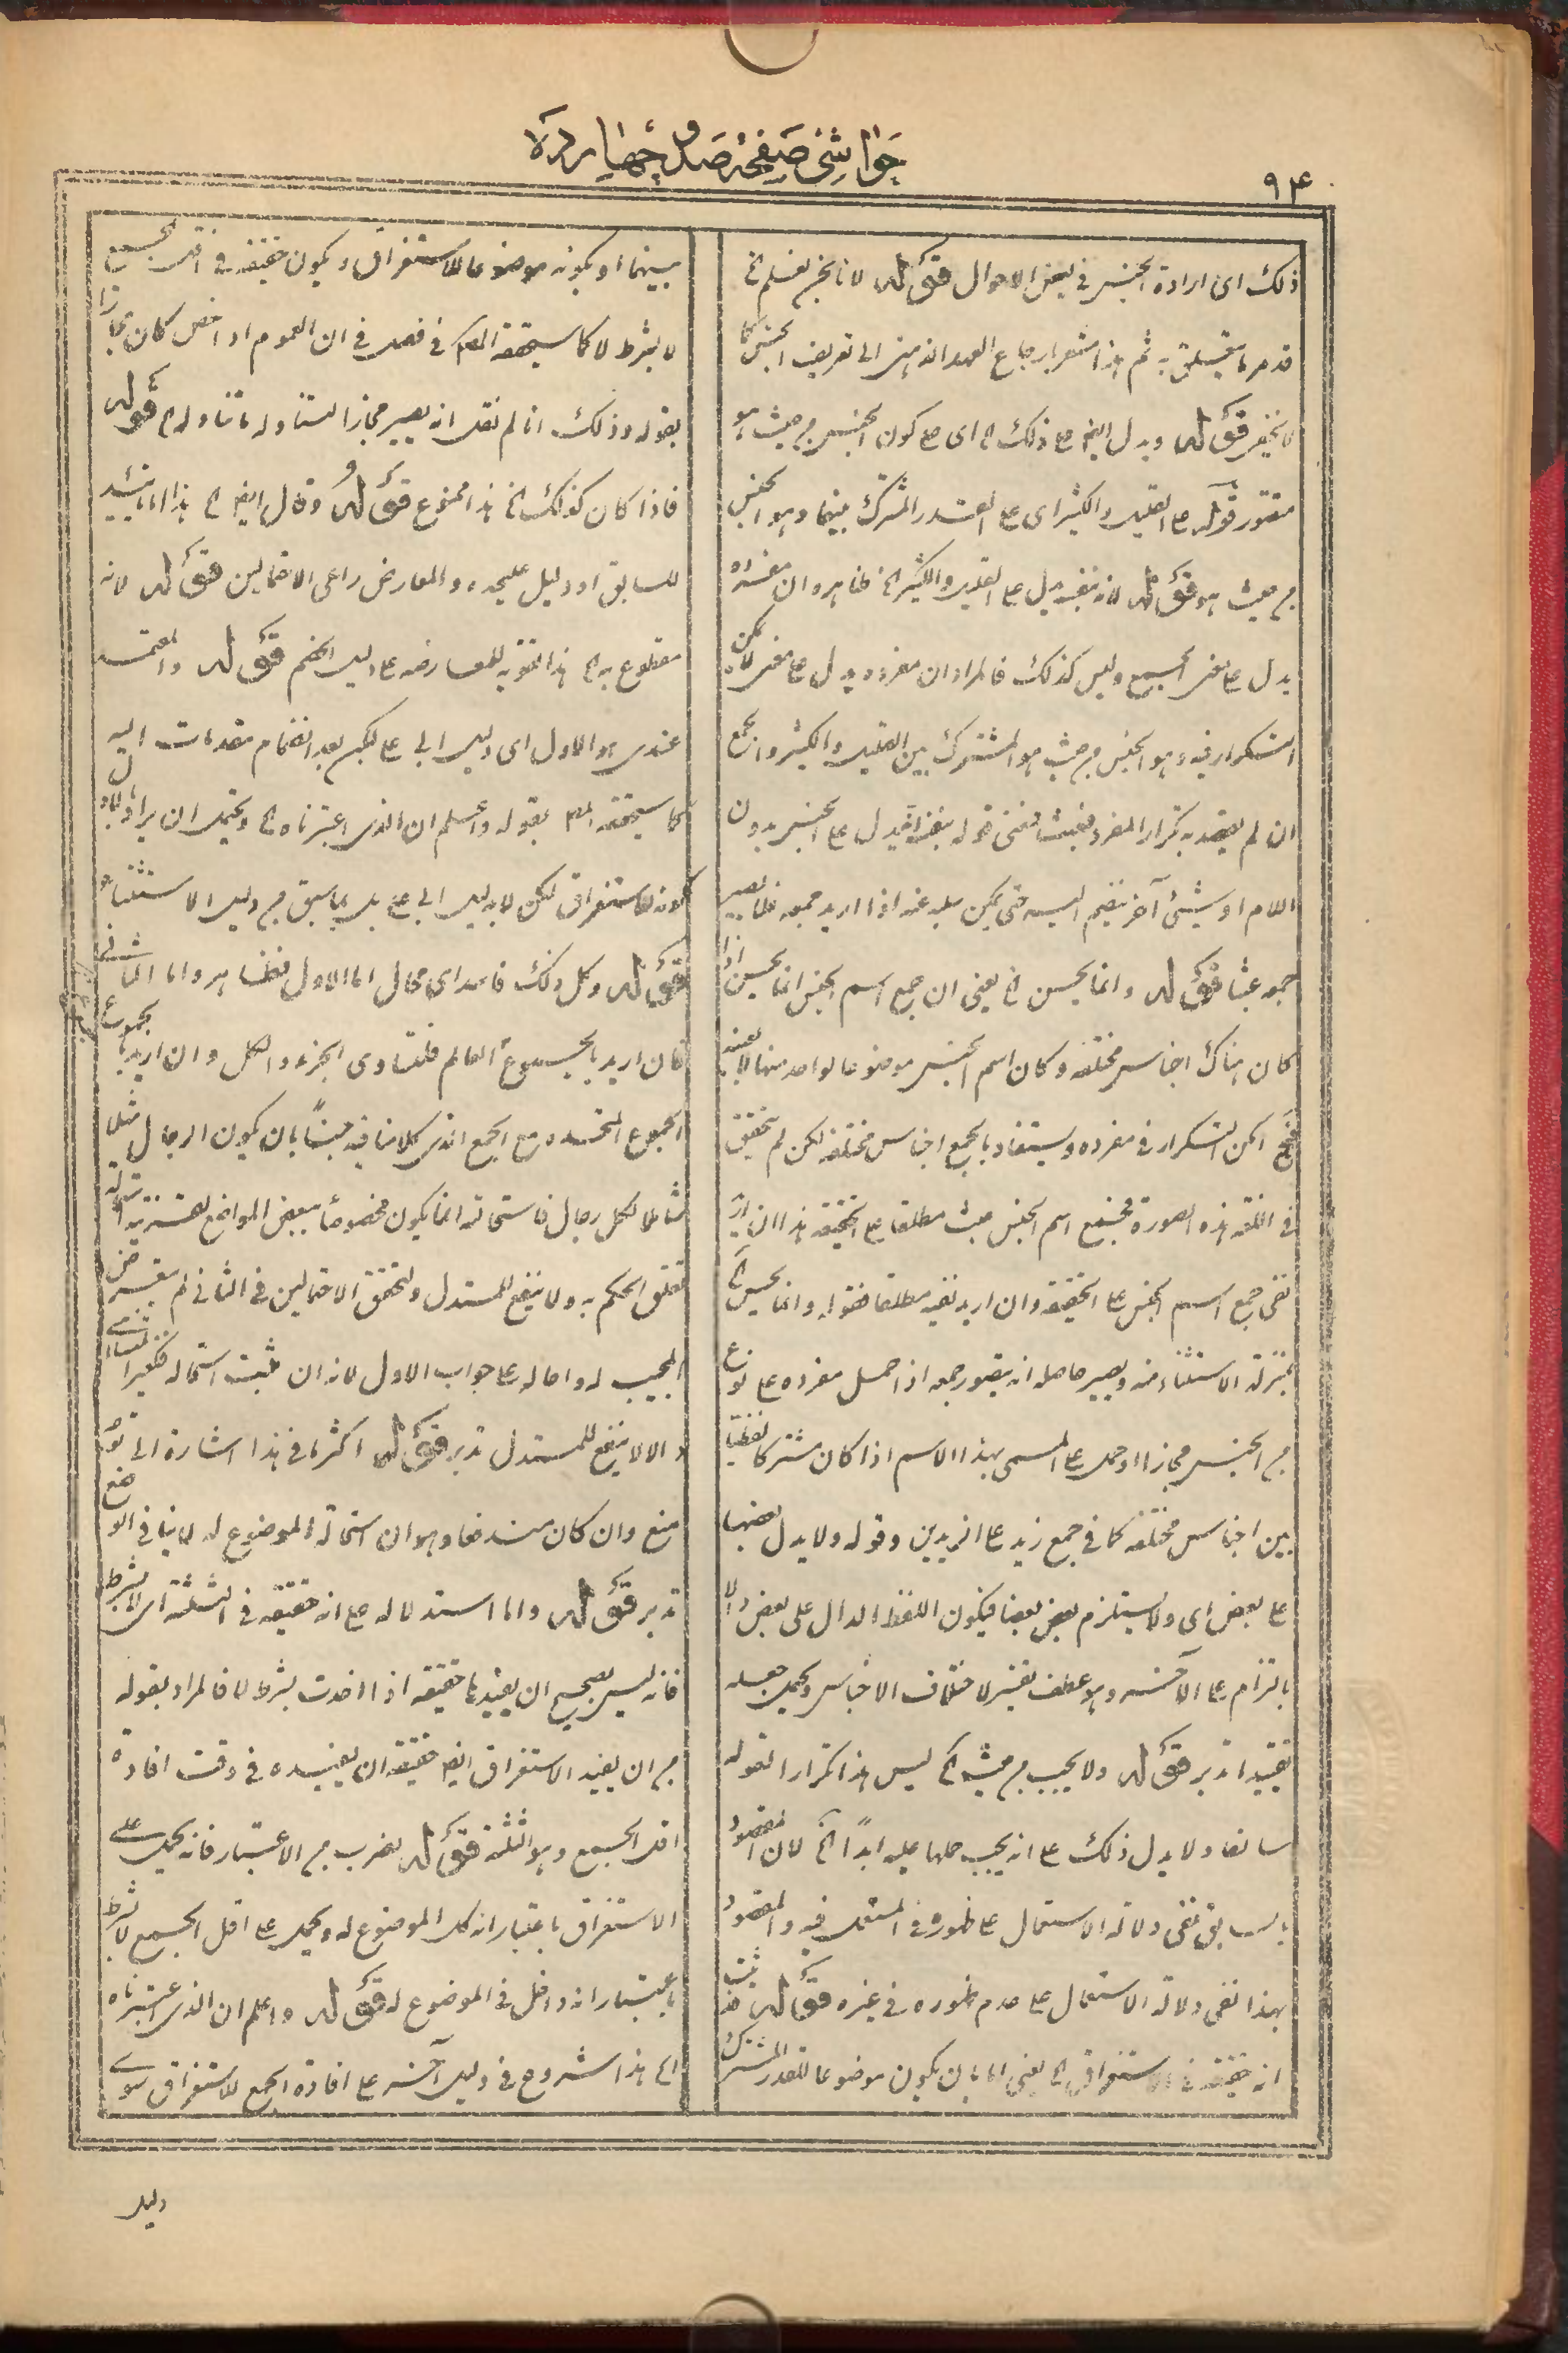 حواشی صفحۀ صد و چهارده
۹۴
ذلك اى ارادة الجنس فى بعض الاحوال قوله لانا نجزم بفسلم الخ
قد مر ما يتعلق به ثم هذا مشعر بارجاع العهد الذهنى الى تعريف الجنس كما
لا يخفى قوله ويدل ايضا على ذلك الخ اى على كون الجنس من حيث هو
مقتور قوله على القليل والكثير اى على القدر المشترك بينهما وهو الجنس
من حيث هو قوله لانه بنفسه يدل على القليل والكثير الخ ظاهره ان مفرده
يدل على معنى الجمع وليس كذلك فالمراد ان مفرده يدل على معنى لا يمكن
التكرار فيه وهو الجنس من حيث هو المشترك بين القليل والكثير والجمع
ان لم يقصد به تكرار المفرد فعبث فمعنى قوله بنفسه يدل على الجنس بدون
اللام او شىء آخر ينضم اليه حتى يمكن سلبه عنه اذا اريد جمعه فلا يصير
جمعه عبثا قوله وانما يحسن الخ يعنى ان جمع اسم الجنس انما يحسن اذا
كان هناك اجناس مختلفه وكان اسم الجنس موضوعا لواحد منها لا بعينه
فح امكن التكرار فى مفرده ويستفاد بالجمع اجناس مختلفه لكن لم يتحقق
فى اللغه هذه الصورة فجمع اسم الجنس عبث مطلقا على الحقيقه هذا ان اريد
نفى جمع اسم الجنس على الحقيقه وان اريد نفيه مطلقا فقوله وانما يحسن الخ
بمنزلة الاستثناء منه ويصير حاصله انه يتصور جمعه اذا حمل مفرده على نوع
من الجنس مجازا او حمل على المسمى بهذا الاسم اذا كان مشتركا لفظيا
بين اجناس مختلفه كما فى جمع زيد على الزيدين وقوله ولا يدل بعضها
على بعض اى ولا يستلزم بعض بعضا فيكون اللفظ الدال على بعض دالا
بالتزام على الآخر وهو عطف تفسير لاختلاف الاجناس ويحتمل جعله
تقييدا تدبر قوله ولا يجب من حيث الخ ليس هذا تكرارا لقوله
سابقا ولا يدل ذلك على انه يجب حملها عليه ابدًا الخ لان المقصود
بالسابق نفى دلالة الاستعمال على ظهوره فى المستعمل فيه والمقصود
بهذا نفى دلالة الاستعمال على عدم ظهوره فى غيره قوله فثبت
انه حقيقة فى الاستغراق الخ يعنى اما بان يكون موضوعا للقدر المشترك
بينهما او بكونه موضوعا للاستغراق ويكون حقيقه فى اقل الجمع
لا بشرط لا كما سيحققه المصـ فى فصل فى ان العموم اذا خص كان مجازا
بقوله وذلك انا لم نقل انه يصير مجازا لتناوله ما تناوله الخ قوله
فاذا كان كذلك الخ هذا ممنوع قوله وقال ايضا الخ هذا اما تأييد
للسابق او دليل عليحده والمعارض راعى الاحتمالين قوله لانه
مقطوع به الخ هذا تقويه للمعارضه على دليل الخصم قوله والمعتمد
عندى هو الاول اى دليل ابى على لكن بعد انضمام مقدمات اليه
كما سيحققه المصـ بقوله واعلم ان الذى اعتبرناه الخ ويحتمل ان يراد بالاول
كونه للاستغراق لكن لا بدليل ابى على بل بما سبق من دليل الاستثناء
قوله وكل ذلك فاسد اى محال اما الاول فظاهر واما الثانى
فان اريد بالمجموع العالم فلتساوى الجزء والكل وان اريد بالمجموع
المجموع المتحد مع الجمع الذى كلامنا فيه جنسًا بان يكون الرجال مثلا
شاملا لكل رجال فاستحالته انما يكون مخصوصا ببعض المواضع لقرينة استحالة
تعلق الحكم به ولا ينفع للمستدل ولتحقق الاحتمالين فى الثانى لم يتعرض
المجيب له واحاله على جواب الاول لانه ان ثبت استحالته
والا لا ينفع للمستدل تدبر قوله اكثر ما فى هذا اشارة الى
منع وان كان مندفعا وهو ان استحالة الموضوع له لا ينافى الوضع
تدبر قوله واما استدلاله على انه حقيقه فى الثلثة اى لا بشرط
فانه ليس بصحيح ان يفيدها حقيقه اذا اخذت بشرط لا فالمراد بقوله
من ان يفيد الاستغراق ايضا حقيقه ان يفيده فى وقت افادة
اقل الجمع وهو الثلثة قوله بضرب من الاعتبار فانه يحمل على
الاستغراق باعتبار انه كل الموضوع له ويحمل على اقل الجمع لا بشرط
باعتبار انه داخل فى الموضوع له قوله واعلم ان الذى اعتبرناه
الخ هذا شروع فى دليل آخر على افادة الجمع للاستغراق سوى
دليل